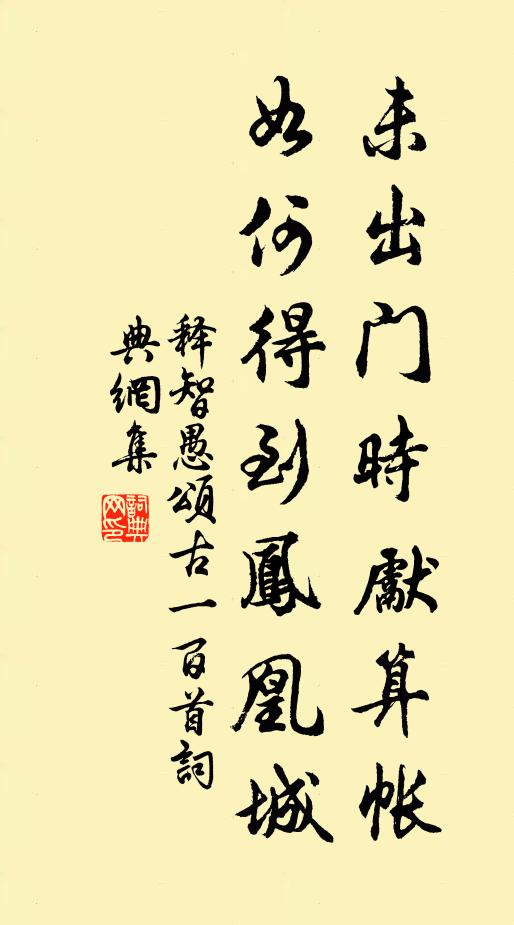 未出門時獻算帳
如何得到鳳凰城
释智愚頌古一百首詞
典網集
詞典網印